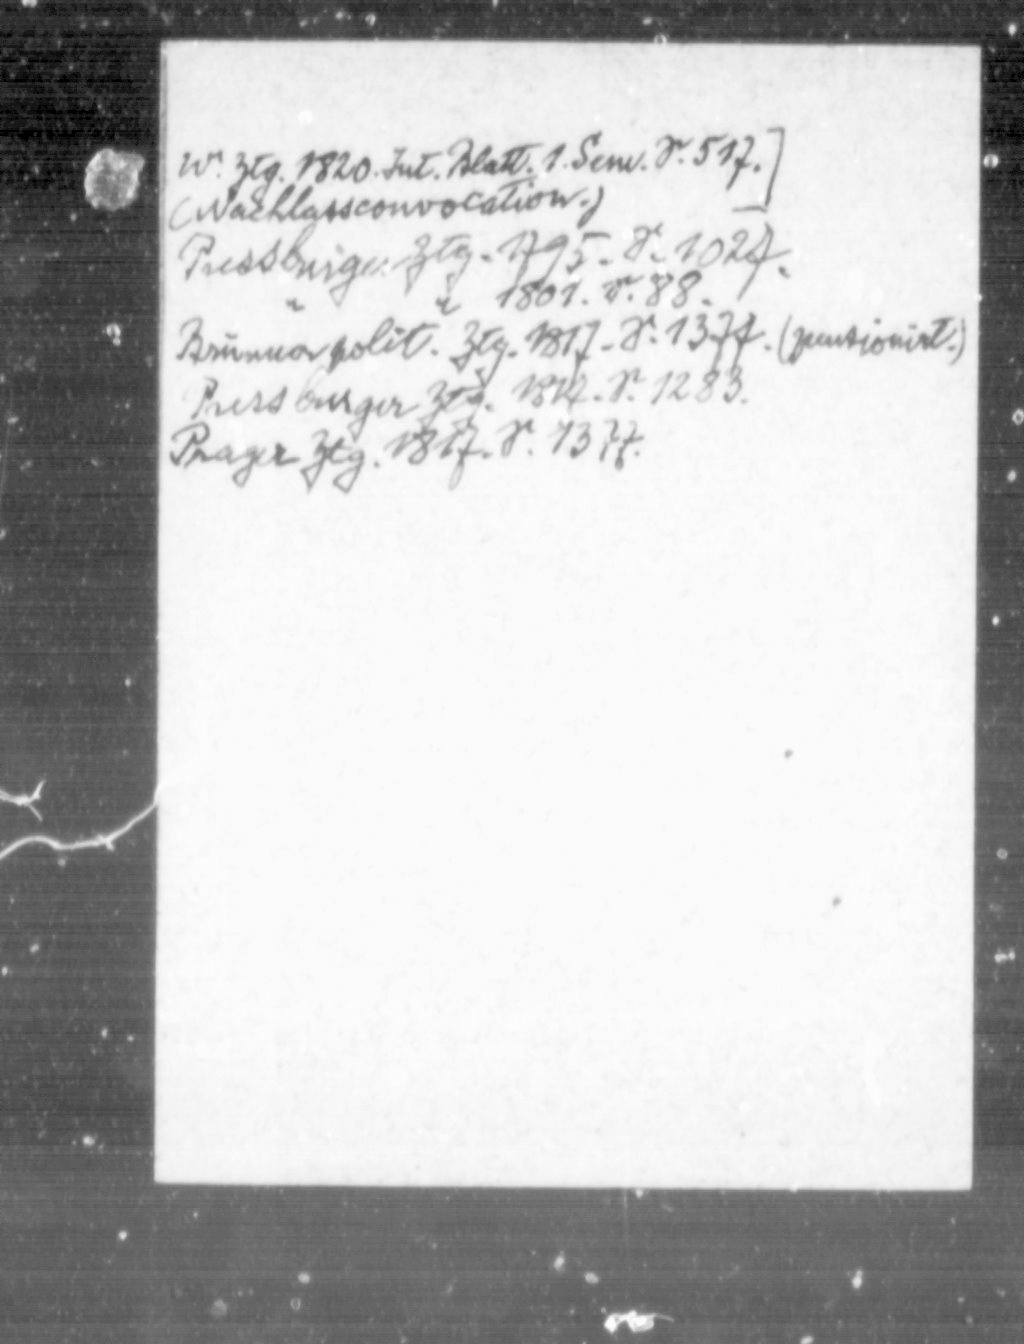 Wr. Ztg. 1820. Int. Blatt. 1. Sem. S. 517.]
(Nachlassconvocation.)
Pressburger Ztg. 1795. S. 1027.
" " 1801. S. 88.
Brünner polit. Ztg. 1817. S. 1374. (pensionirt.)
Pressburger Ztg. 1812. S. 1283.
Prager Ztg. 1817. S. 1377.